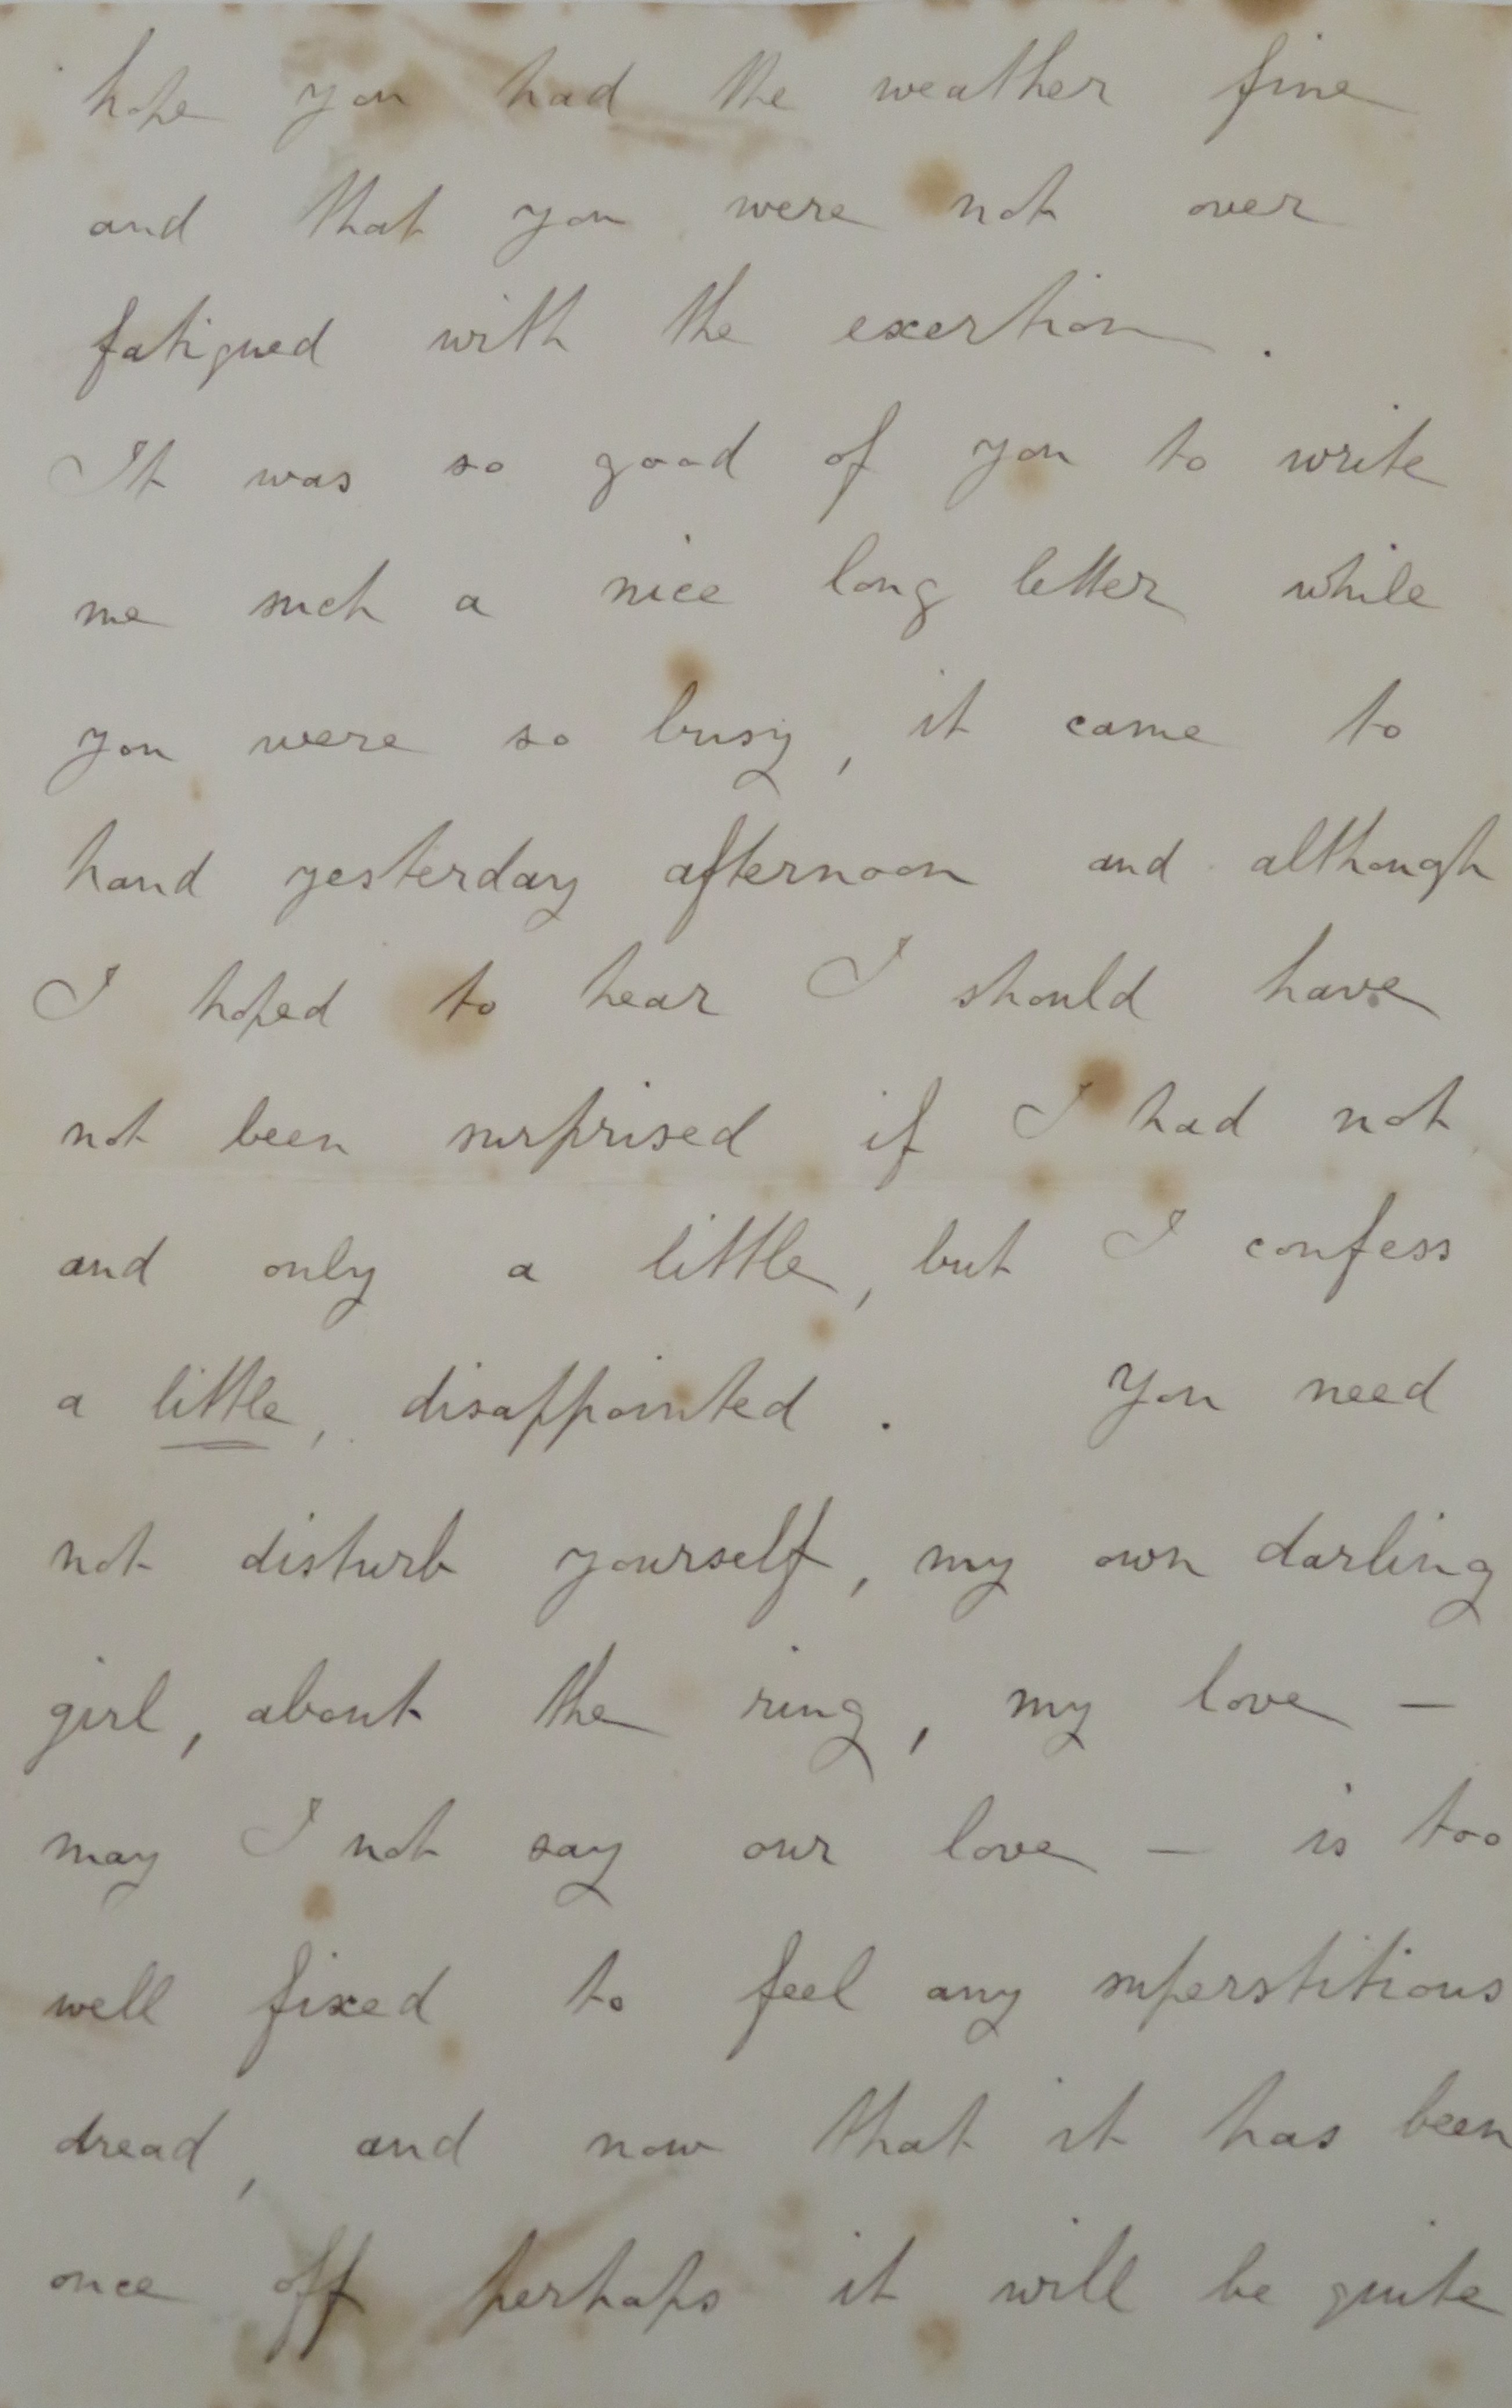 hope you had the weather fine
and that you were not over
fatigued with the exertion.
It was so good of you to write
me such a nice long letter while
you were so busy, it came to
hand yesterday afternoon and although
I hoped to hear I should have
not been surprised if I had not
and only a little, but I confess
a little, disappointed. You need
not disturb yourself, my own darling
girl, about the ring, my love —
may I not say our love — is too
well fixed to feel any superstitious
dread, and now that it has been
once off perhaps it will be quite